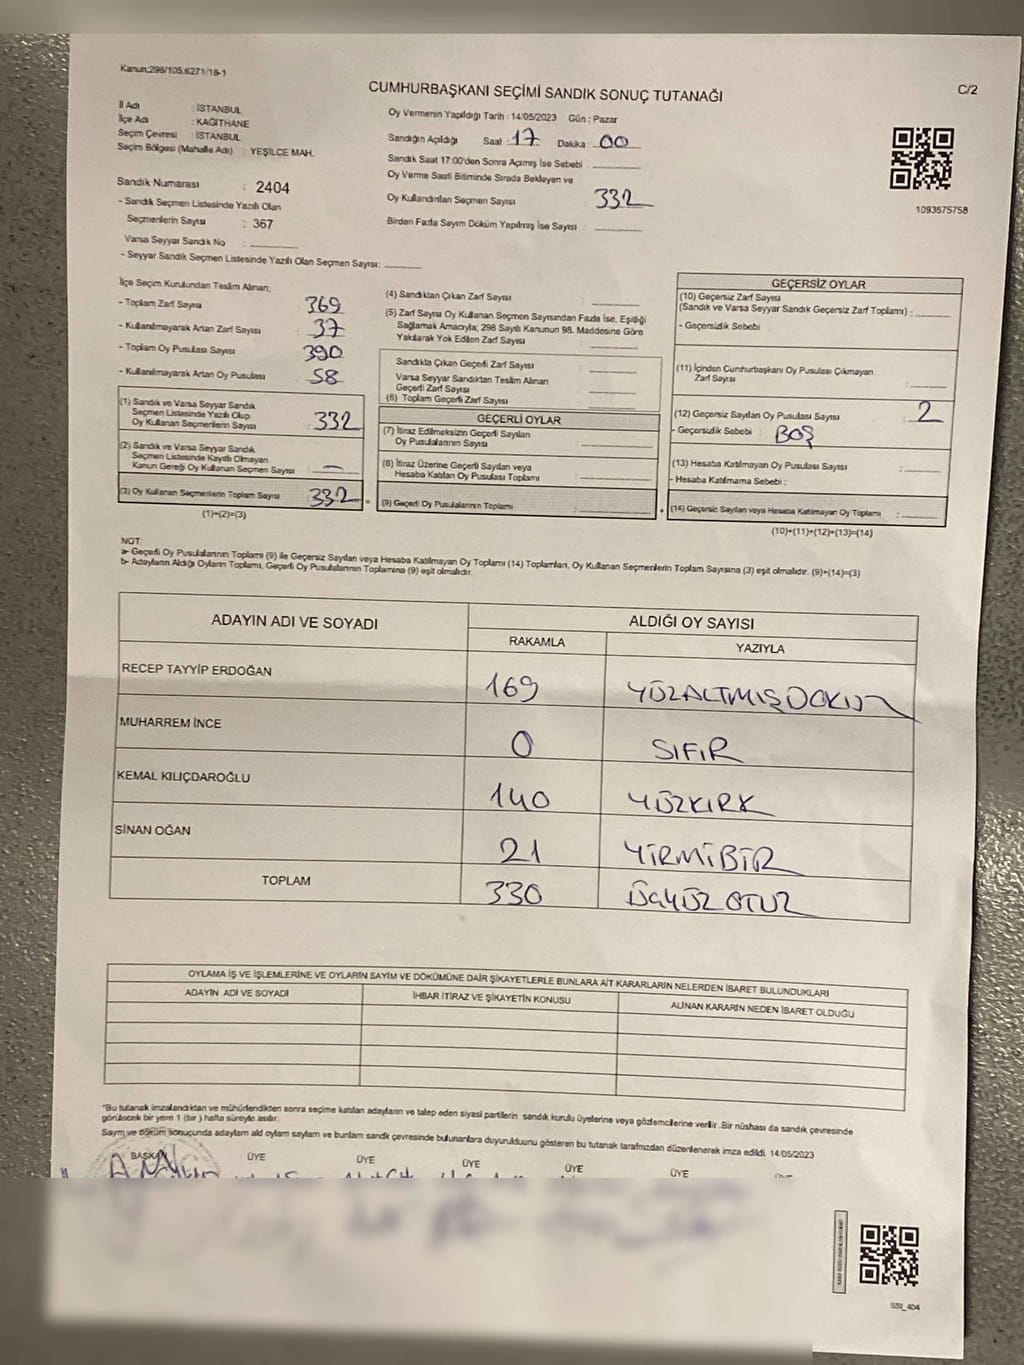 Kanun:298/105,6271/18-1
C/2
CUMHURBAŞKANI SEÇİMİ SANDIK SONUÇ TUTANAĞI
İl Adı : İSTANBUL
İlçe Adı : KAĞITHANE
Seçim Çevresi : İSTANBUL
Seçim Bölgesi (Mahalle Adı) : YEŞİLCE MAH.
Sandık Numarası : 2404
- Sandık Seçmen Listesinde Yazılı Olan
Seçmenlerin Sayısı : 367
Varsa Seyyar Sandık No :
- Seyyar Sandık Seçmen Listesinde Yazılı Olan Seçmen Sayısı:
Oy Vermenin Yapıldığı Tarih : 14/05/2023 Gün : Pazar
Sandığın Açıldığı Saat : 17 Dakika : 00
Sandık Saat 17:00'den Sonra Açmış İse Sebebi
Oy Verme Saati Bitiminde Sırada Bekleyen ve
Oy Kullandırılan Seçmen Sayısı 332
Birden Fazla Sayım Döküm Yapılmış İse Sayısı :
1093575758
İlçe Seçim Kurulundan Teslim Alınan;
- Toplam Zarf Sayısı 369
- Kullanılmayarak Artan Zarf Sayısı 37
- Toplam Oy Pusulası Sayısı 390
- Kullanılmayarak Artan Oy Pusulası 58
(1) Sandık ve Varsa Seyyar Sandık
Seçmen Listesinde Yazılı Olup
Oy Kullanan Seçmenlerin Sayısı : 332
(2) Sandık ve Varsa Seyyar Sandık
Seçmen Listesinde Kayıtlı Olmayan
Kanun Gereği Oy Kullanan Seçmen Sayısı : —
(3) Oy Kullanan Seçmenlerin Toplam Sayısı 332 =
(1)+(2)=(3)
(4) Sandıktan Çıkan Zarf Sayısı :
(5) Zarf Sayısı Oy Kullanan Seçmen Sayısından Fazla İse, Eşitliği
Sağlamak Amacıyla; 298 Sayılı Kanunun 98. Maddesine Göre
Yakılarak Yok Edilen Zarf Sayısı :
Sandıkta Çıkan Geçerli Zarf Sayısı :
Varsa Seyyar Sandıktan Teslim Alınan
Geçerli Zarf Sayısı :
(6) Toplam Geçerli Zarf Sayısı :
GEÇERLİ OYLAR
(7) İtiraz Edilmeksizin Geçerli Sayılan
Oy Pusulalarının Sayısı :
(8) İtiraz Üzerine Geçerli Sayılan veya
Hesaba Katılan Oy Pusulası Toplamı :
(9) Geçerli Oy Pusulalarının Toplamı : +
GEÇERSİZ OYLAR
(10) Geçersiz Zarf Sayısı
(Sandık ve Varsa Seyyar Sandık Geçersiz Zarf Toplamı) :
- Geçersizlik Sebebi
(11) İçinden Cumhurbaşkanı Oy Pusulası Çıkmayan
Zarf Sayısı :
(12) Geçersiz Sayılan Oy Pusulası Sayısı : 2
- Geçersizlik Sebebi : BOŞ
(13) Hesaba Katılmayan Oy Pusulası Sayısı :
- Hesaba Katılmama Sebebi :
(14) Geçersiz Sayılan veya Hesaba Katılmayan Oy Toplamı :
(10)+(11)+(12)+(13)=(14)
NOT:
a- Geçerli Oy Pusulalarının Toplamı (9) ile Geçersiz Sayılan veya Hesaba Katılmayan Oy Toplamı (14) Toplamları, Oy Kullanan Seçmenlerin Toplam Sayısına (3) eşit olmalıdır. (9)+(14)=(3)
b- Adayların Aldığı Oyların Toplamı, Geçerli Oy Pusulalarının Toplamına (9) eşit olmalıdır.
ADAYIN ADI VE SOYADI ALDIĞI OY SAYISI
RAKAMLA YAZIYLA
RECEP TAYYİP ERDOĞAN 169 YÜZALTMIŞDOKUZ
MUHARREM İNCE 0 SIFIR
KEMAL KILIÇDAROĞLU 140 YÜZKIRK
SİNAN OĞAN 21 YİRMİBİR
TOPLAM 330 ÜÇYÜZ OTUZ
OYLAMA İŞ VE İŞLEMLERİNE VE OYLARIN SAYIM VE DÖKÜMÜNE DAİR ŞİKAYETLERLE BUNLARA AİT KARARLARIN NELERDEN İBARET BULUNDUKLARI
ADAYIN ADI VE SOYADI İHBAR İTİRAZ VE ŞİKAYETİN KONUSU ALINAN KARARIN NEDEN İBARET OLDUĞU
"Bu tutanak imzalandıktan ve mühürlendikten sonra seçime katılan adayların ve talep eden siyasi partilerin sandık kurulu üyelerine veya gözlemcilerine verilir. Bir nüshası da sandık çevresinde
görülecek bir yere 1 (bir) hafta süreyle asılır.
Sayım ve döküm sonucunda adayların aldı oyların sayların ve bunların sandk çevresinde bulunanlara duyurulduunu gösteren bu tutanak tarafımızdan düzenlenerek imza edildi. 14/05/2023
BAŞKAN ÜYE ÜYE ÜYE ÜYE ÜYE
SSI_404